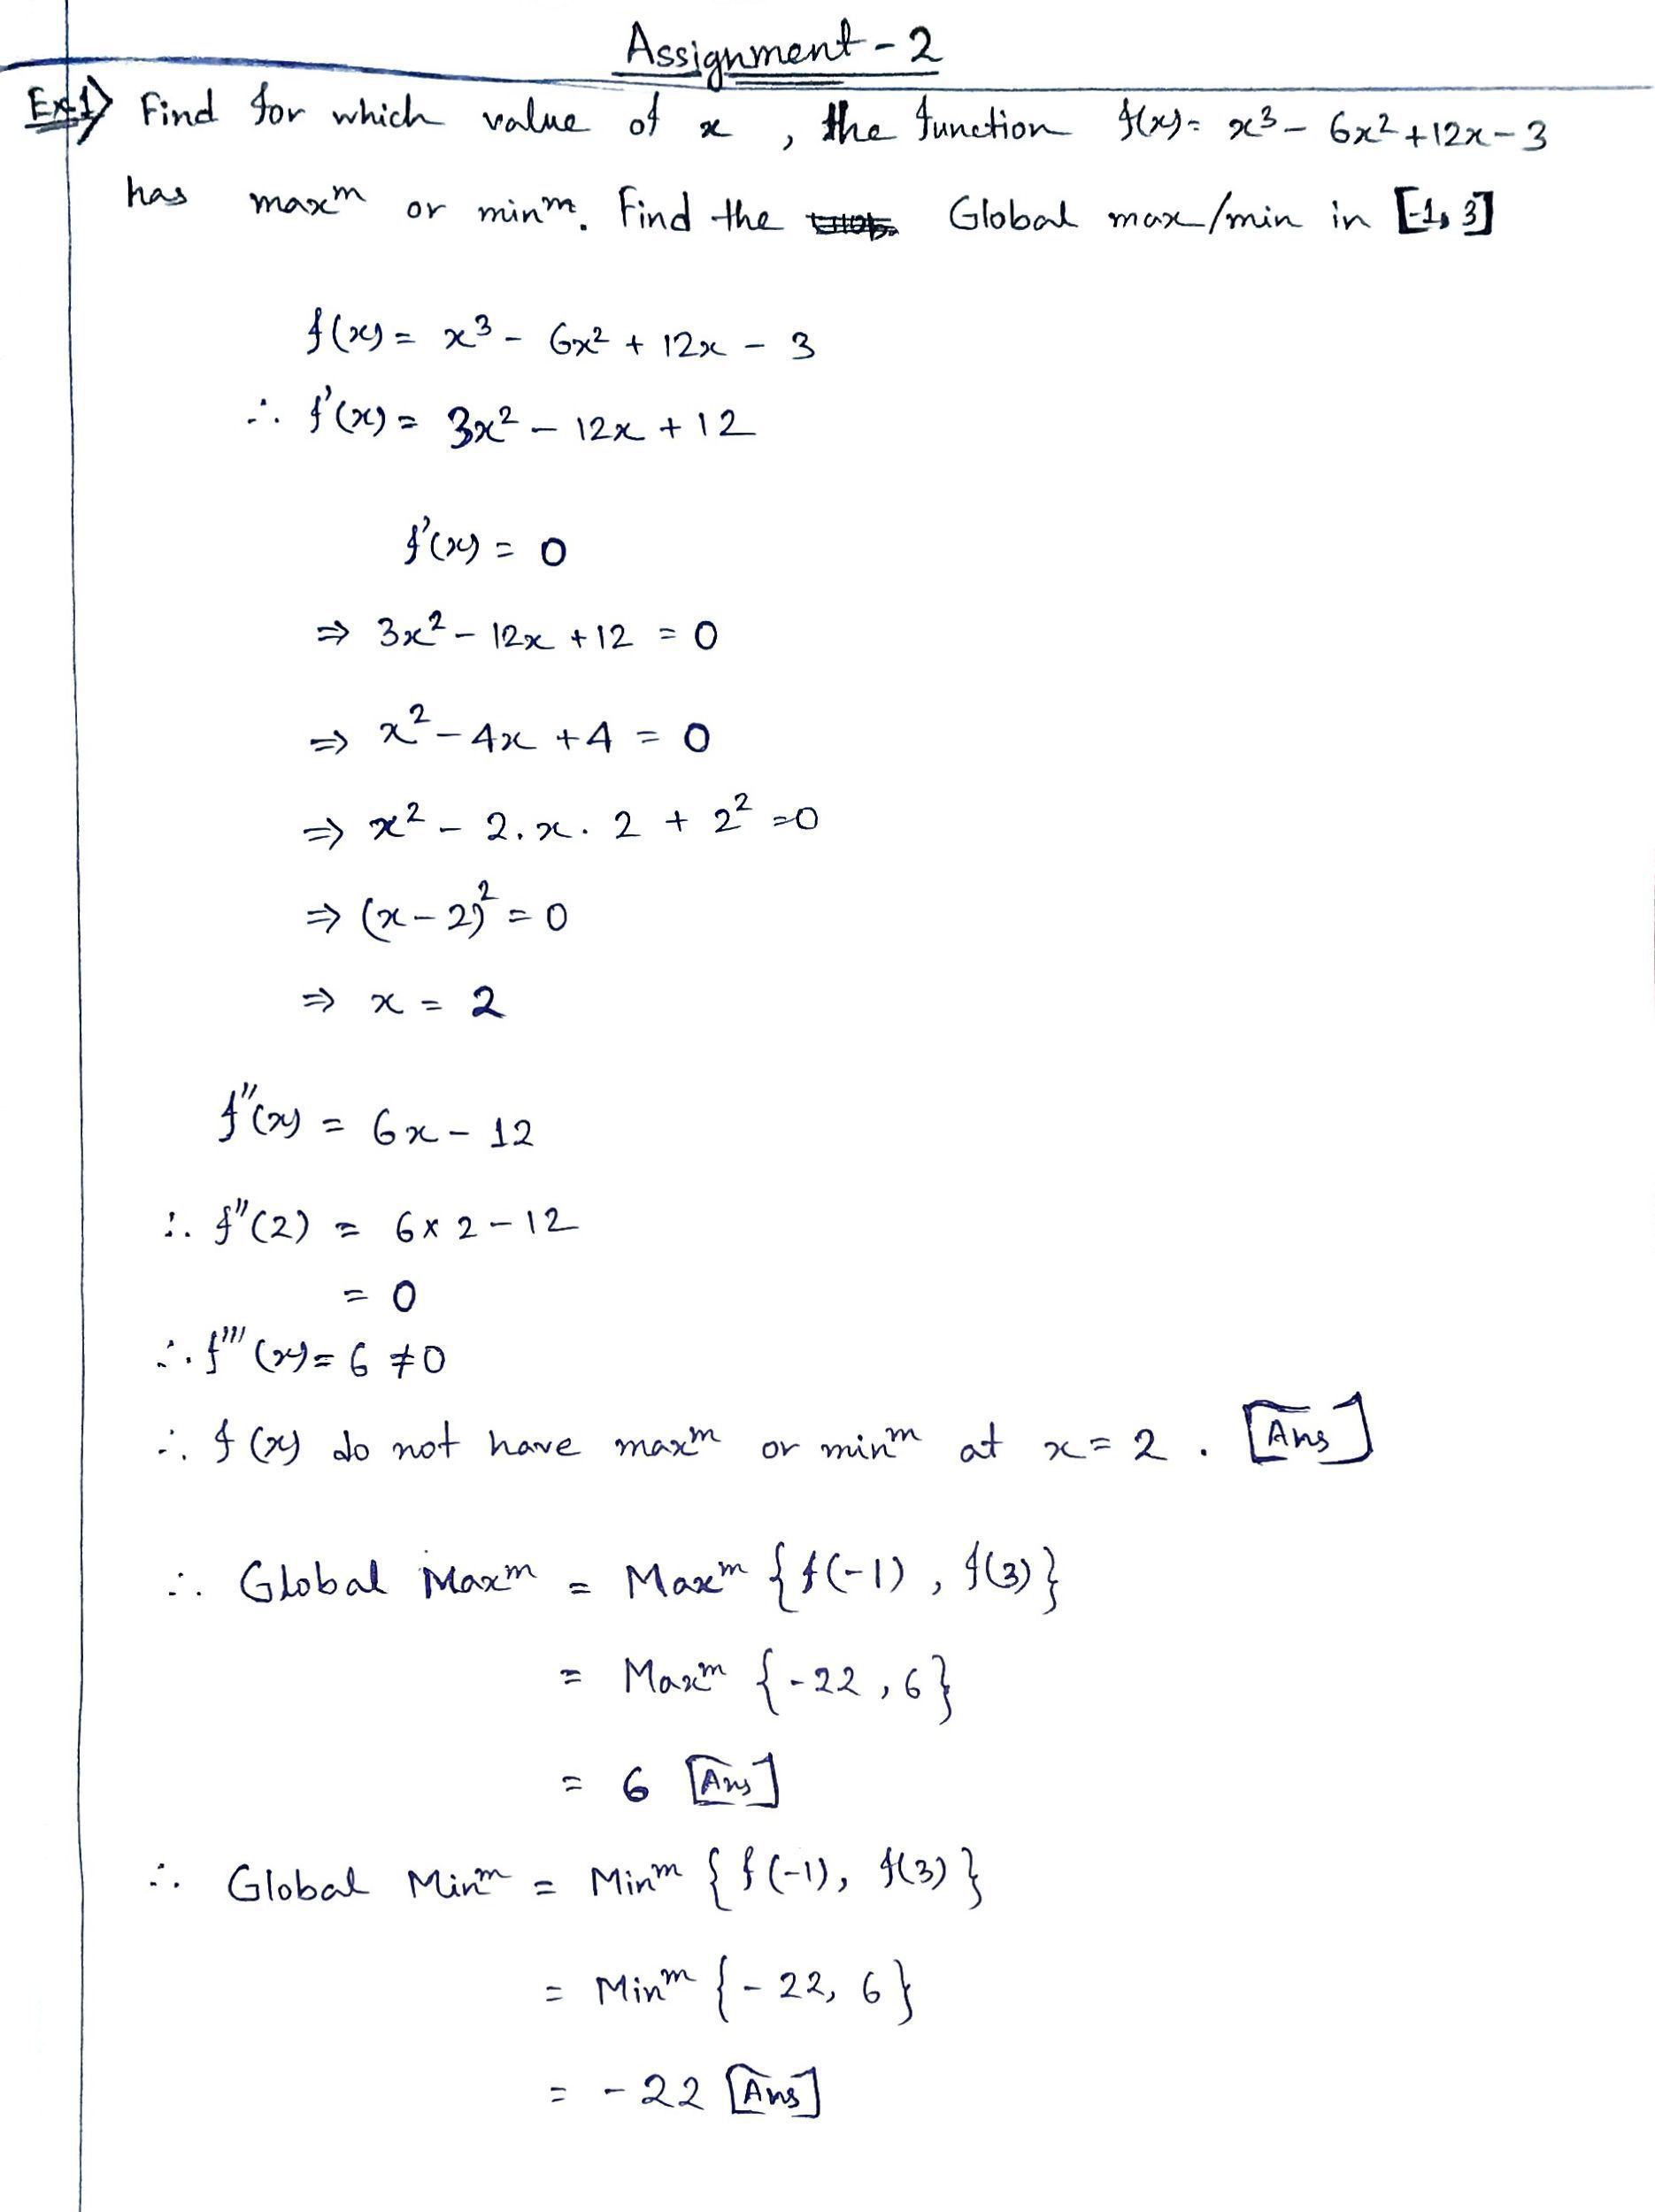 Assignment - 2
Ex-1) Find for which value of x , the function f(x) = x³ - 6x² + 12x - 3
has maxᵐ or minᵐ. Find the Global max/min in [-1, 3]
f(x) = x³ - 6x² + 12x - 3
∴ f'(x) = 3x² - 12x + 12
f'(x) = 0
⇒ 3x² - 12x + 12 = 0
⇒ x² - 4x + 4 = 0
⇒ x² - 2.x.2 + 2² = 0
⇒ (x - 2)² = 0
⇒ x = 2
f''(x) = 6x - 12
∴ f''(2) = 6 x 2 - 12
= 0
∴ f'''(x) = 6 ≠ 0
∴ f(x) do not have maxᵐ or minᵐ at x = 2 . [Ans]
∴ Global Maxᵐ = Maxᵐ {f(-1), f(3)}
= Maxᵐ {-22, 6}
= 6 [Ans]
∴ Global Minᵐ = Minᵐ {f(-1), f(3)}
= Minᵐ {-22, 6}
= -22 [Ans]